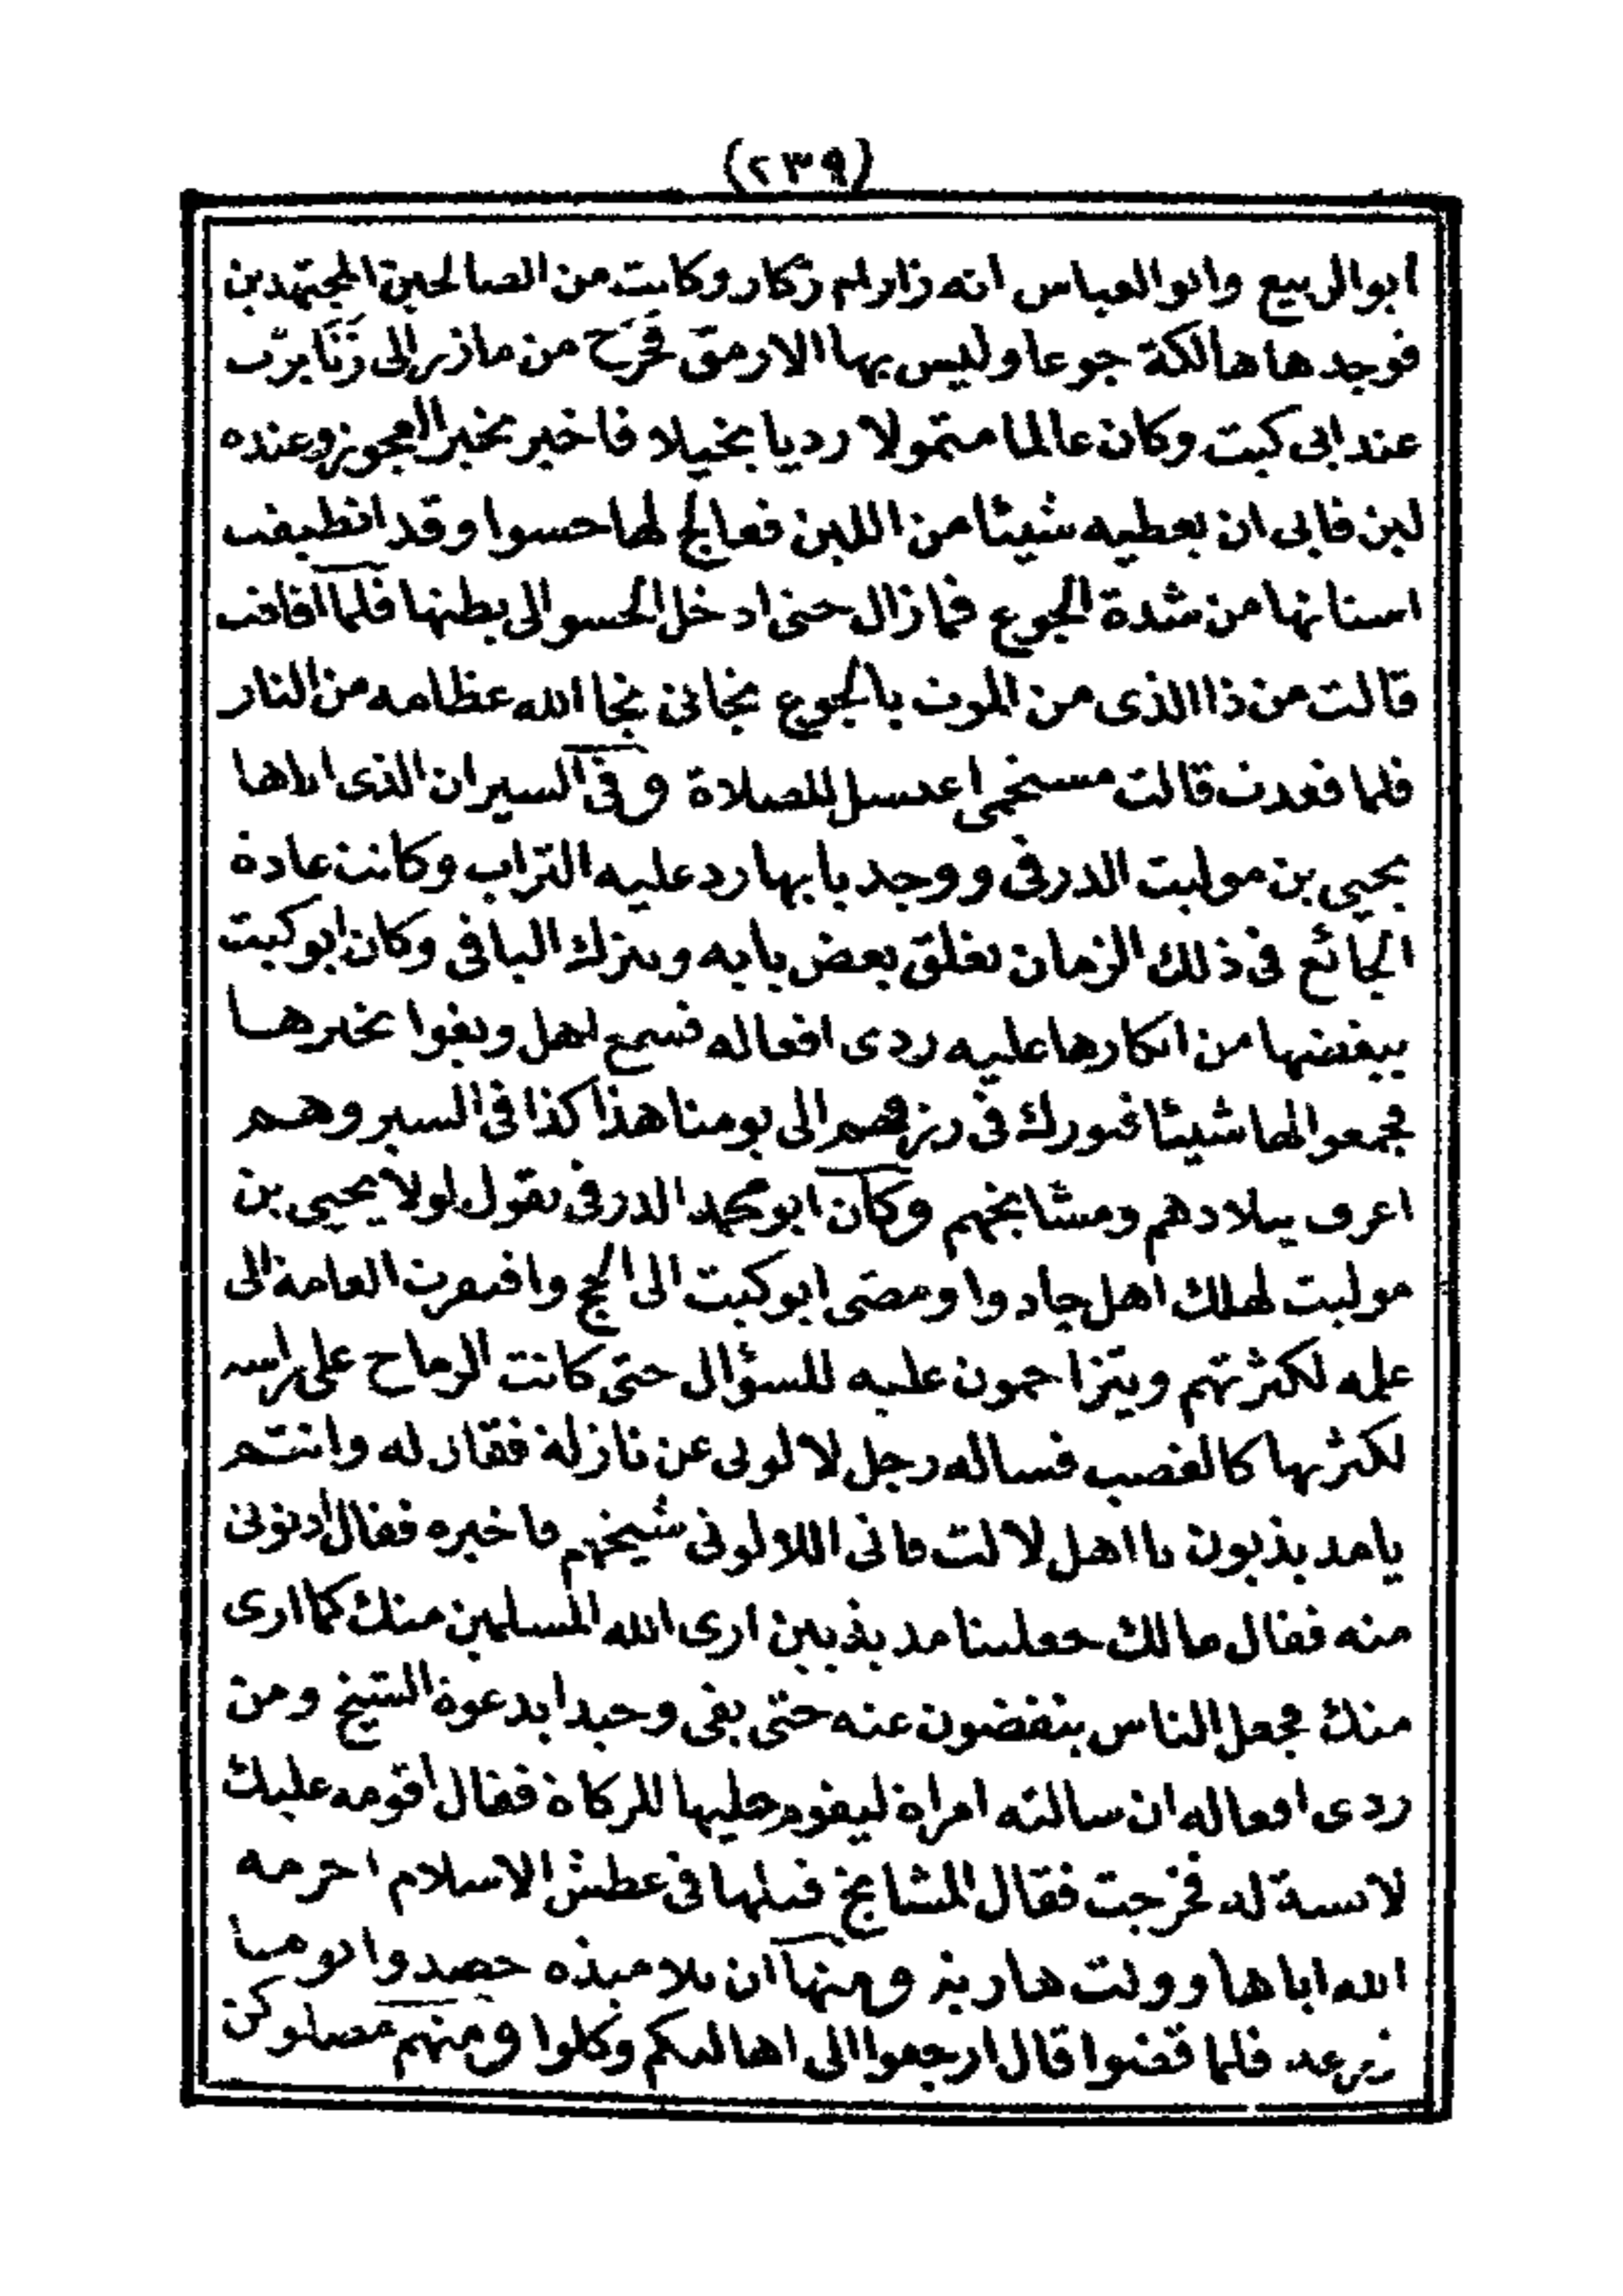 (٢٣٩)
ابوالربيع وابوالعباس انه زارام زكار وكانت من الصالحين المجتهدين
فوجدها هالكة جوعا وليس بها الا رمق فخرج من ماذر الى
عندابى كبت وكان عالما متمولا رديا بخيلا فاخبر بخبر العجوز وعنده
لبن فابى ان يعطيه شيئا من اللبن فعالج لها حسوا وقد انطبقت
اسنانها من شدة الجوع فما زال حتى ادخل الحسو الى بطنها فلما افاقت
قالت من ذا الذى من الموت بالجوع نجانى نجا الله عظامه من النار
فلما قعدت قالت للصلاة وفى السير ان الذى اتاها
يحيى بن موليت الدرفى ووجد بابها رد عليه التراب وكانت عادة
الجائع فى ذلك الزمان يغلق بعض بابه ويترك الباقى وكان ابو كبت
يبغضها من انكارها عليه ردى افعاله فسمع اهل ويغوا بخبرها
فجمعوا لها شيئا فبورك فى الى يومنا هذا كذا فى السير وهم
اعرف ببلادهم ومشايخهم وكان ابو محمد الدرفى يقول لولا يحيى بن
موليت لهلك اهل جادوا ومضى ابو كبت الى الحج وافترت العامة الى
علمه لكثرتهم ويتزاحمون عليه للسؤال حتى كانت الرماح على راسه
لكثرتها كالغصب فساله رجل لالوتى عن نازلة فقال له وانتم
يا مذبذبون يا اهل لالت فاتى اللالوتى شيخهم فاخبره فقال ادنونى
منه فقال مالك جعلتنا مذبذبين ارى الله المسلمين منك كما ارى
منك فجعل الناس ينفضون عنه حتى بقى وحيدا بدعوة الشيخ ومن
ردى افعاله ان سالته امراة ليقوم حليها للزكاة فقال اقومه عليك
لابسة له فخرجت فقال المشايخ قتلها فى عطش الاسلام احرمه
الله اياها وولت هاربة ومنها ان تلاميذه حصدوا يوما
زرعه فلما قضوا قال ارجعوا الى اهاليكم وكلوا ومنهم مصلوكن